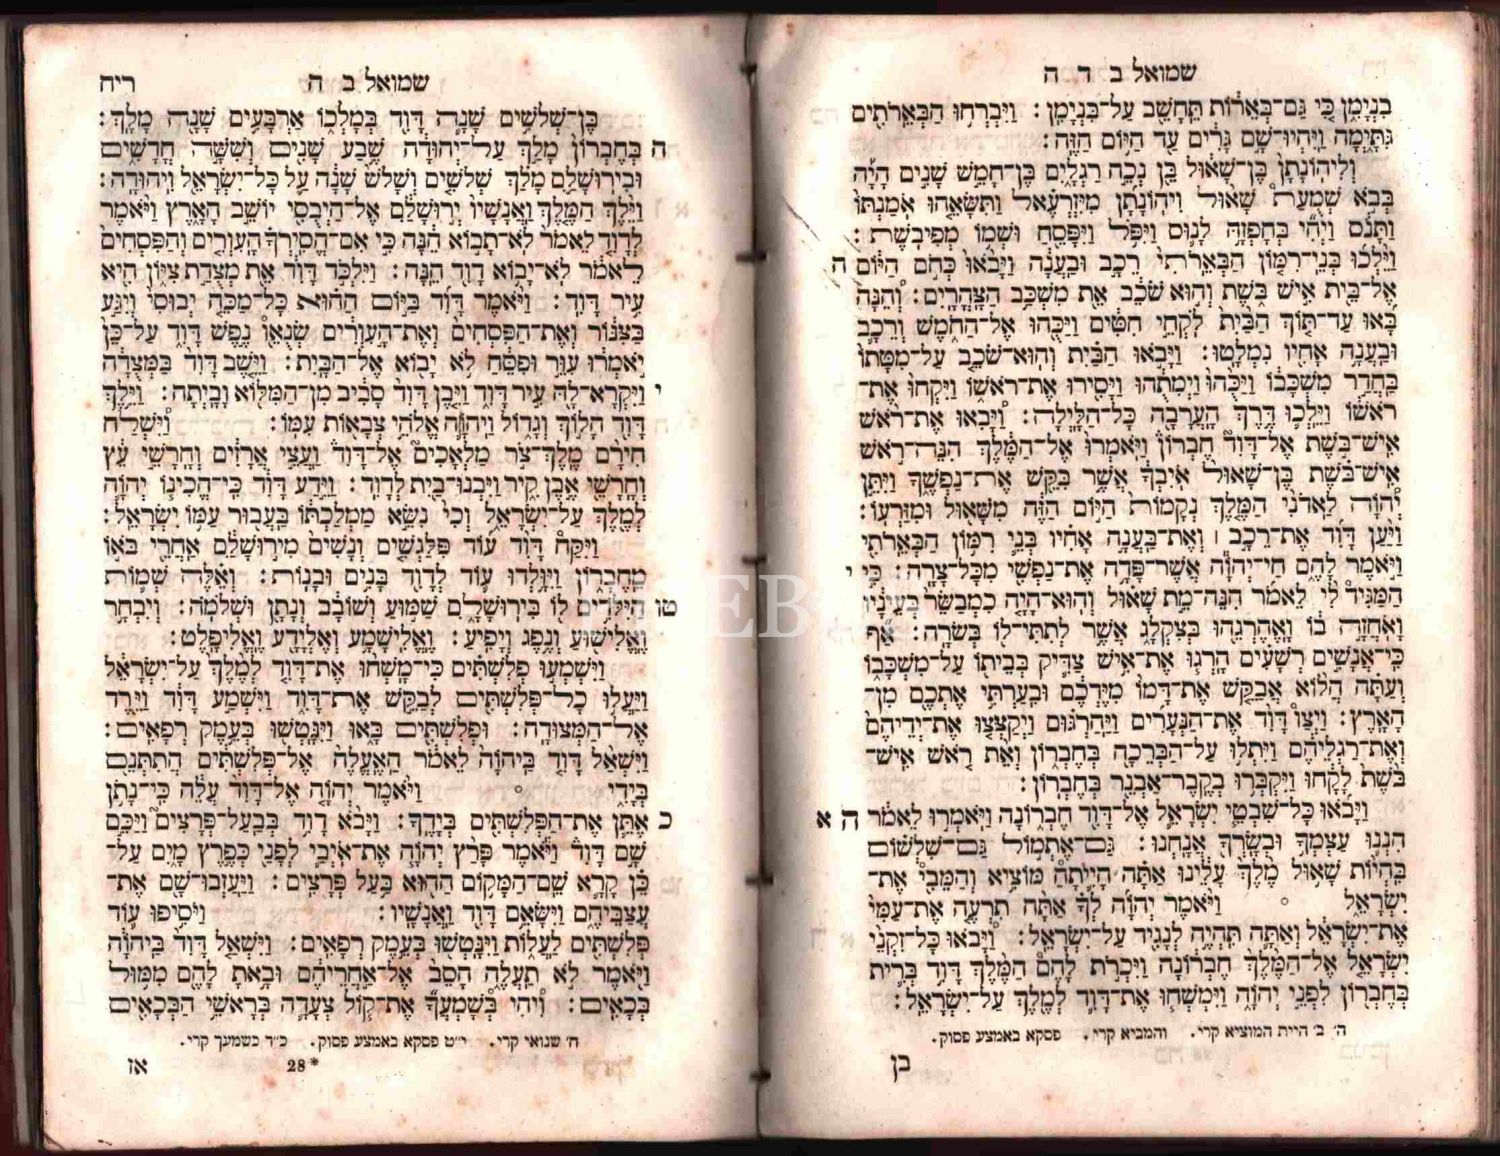 שמואל ב ד ה
בִנְיָמִן כִּי גַּם־בְּאֵרוֹת תֵּחָשֵׁב עַל־בִּנְיָמִן׃ וַיִּבְרְחוּ הַבְּאֵרֹתִים
גִּתָּיְמָה וַיִּהְיוּ־שָׁם גָּרִים עַד הַיּוֹם הַזֶּה׃
וְלִיהוֹנָתָן בֶּן־שָׁאוּל בֵּן נְכֵה רַגְלָיִם בֶּן־חָמֵשׁ שָׁנִים הָיָה
בְּבֹא שְׁמֻעַת שָׁאוּל וִיהוֹנָתָן מִיִּזְרְעֶאל וַתִּשָּׂאֵהוּ אֹמַנְתּוֹ
וַתָּנֹס וַיְהִי בְּחָפְזָהּ לָנוּס וַיִּפֹּל וַיִּפָּסֵחַ וּשְׁמוֹ מְפִיבֹשֶׁת׃
ה וַיֵּלְכוּ בְּנֵי־רִמּוֹן הַבְּאֵרֹתִי רֵכָב וּבַעֲנָה וַיָּבֹאוּ כְּחֹם הַיּוֹם
אֶל־בֵּית אִישׁ בֹּשֶׁת וְהוּא שֹׁכֵב אֵת מִשְׁכַּב הַצָּהֳרָיִם׃ וְהֵנָּה
בָּאוּ עַד־תּוֹךְ הַבַּיִת לֹקְחֵי חִטִּים וַיַּכֻּהוּ אֶל־הַחֹמֶשׁ וְרֵכָב
וּבַעֲנָה אָחִיו נִמְלָטוּ׃ וַיָּבֹאוּ הַבַּיִת וְהוּא־שֹׁכֵב עַל־מִטָּתוֹ
בַּחֲדַר מִשְׁכָּבוֹ וַיַּכֻּהוּ וַיְמִתֻהוּ וַיָּסִירוּ אֶת־רֹאשׁוֹ וַיִּקְחוּ אֶת־
רֹאשׁוֹ וַיֵּלְכוּ דֶּרֶךְ הָעֲרָבָה כָּל־הַלָּיְלָה׃ וַיָּבִאוּ אֶת־רֹאשׁ
אִישׁ־בֹּשֶׁת אֶל־דָּוִד חֶבְרוֹן וַיֹּאמְרוּ אֶל־הַמֶּלֶךְ הִנֵּה־רֹאשׁ
אִישׁ־בֹּשֶׁת בֶּן־שָׁאוּל אֹיִבְךָ אֲשֶׁר בִּקֵּשׁ אֶת־נַפְשֶׁךָ וַיִּתֵּן
יְהוָֹה לַאדֹנִי הַמֶּלֶךְ נְקָמוֹת הַיּוֹם הַזֶּה מִשָּׁאוּל וּמִזַּרְעוֹ׃
וַיַּעַן דָּוִד אֶת־רֵכָב ׀ וְאֶת־בַּעֲנָה אָחִיו בְּנֵי רִמּוֹן הַבְּאֵרֹתִי
י וַיֹּאמֶר לָהֶם חַי־יְהוָֹה אֲשֶׁר־פָּדָה אֶת־נַפְשִׁי מִכָּל־צָרָה׃ כִּי
הַמַּגִּיד לִי לֵאמֹר הִנֵּה־מֵת שָׁאוּל וְהוּא־הָיָה כִמְבַשֵּׂר בְּעֵינָיו
וָאֹחֲזָה בוֹ וָאֶהְרְגֵהוּ בְּצִקְלָג אֲשֶׁר לְתִתִּי־לוֹ בְּשֹׂרָה׃ אַף
כִּי־אֲנָשִׁים רְשָׁעִים הָרְגוּ אֶת־אִישׁ צַדִּיק בְּבֵיתוֹ עַל־מִשְׁכָּבוֹ
וְעַתָּה הֲלוֹא אֲבַקֵּשׁ אֶת־דָּמוֹ מִיֶּדְכֶם וּבִעַרְתִּי אֶתְכֶם מִן־
הָאָרֶץ׃ וַיְצַו דָּוִד אֶת־הַנְּעָרִים וַיַּהַרְגוּם וַיְקַצְּצוּ אֶת־יְדֵיהֶם
וְאֶת־רַגְלֵיהֶם וַיִּתְלוּ עַל־הַבְּרֵכָה בְּחֶבְרוֹן וְאֵת רֹאשׁ אִישׁ־
בֹּשֶׁת לָקָחוּ וַיִּקְבְּרוּ בְקֶבֶר־אַבְנֵר בְּחֶבְרוֹן׃
ה א וַיָּבֹאוּ כָּל־שִׁבְטֵי יִשְׂרָאֵל אֶל־דָּוִד חֶבְרוֹנָה וַיֹּאמְרוּ לֵאמֹר
הִנְנוּ עַצְמְךָ וּבְשָׂרְךָ אֲנָחְנוּ׃ גַּם־אֶתְמוֹל גַּם־שִׁלְשׁוֹם
בִּהְיוֹת שָׁאוּל מֶלֶךְ עָלֵינוּ אַתָּה הָיִיתָה מּוֹצִיא וְהַמֵּבִי אֶת־
יִשְׂרָאֵל ° וַיֹּאמֶר יְהוָֹה לְךָ אַתָּה תִרְעֶה אֶת־עַמִּי
אֶת־יִשְׂרָאֵל וְאַתָּה תִּהְיֶה לְנָגִיד עַל־יִשְׂרָאֵל׃ וַיָּבֹאוּ כָּל־זִקְנֵי
יִשְׂרָאֵל אֶל־הַמֶּלֶךְ חֶבְרוֹנָה וַיִּכְרֹת לָהֶם הַמֶּלֶךְ דָּוִד בְּרִית
בְּחֶבְרוֹן לִפְנֵי יְהוָֹה וַיִּמְשְׁחוּ אֶת־דָּוִד לְמֶלֶךְ עַל־יִשְׂרָאֵל׃
ה׳ ב׳ היית המוציא קרי. והמביא קרי. פסקא באמצע פסוק.
בן
שמואל ב ה ריח
בֶּן־שְׁלֹשִׁים שָׁנָה דָּוִד בְּמָלְכוֹ אַרְבָּעִים שָׁנָה מָלָךְ׃
ה בְּחֶבְרוֹן מָלַךְ עַל־יְהוּדָה שֶׁבַע שָׁנִים וְשִׁשָּׁה חֳדָשִׁים
וּבִירוּשָׁלִַם מָלַךְ שְׁלֹשִׁים וְשָׁלֹשׁ שָׁנָה עַל כָּל־יִשְׂרָאֵל וִיהוּדָה׃
וַיֵּלֶךְ הַמֶּלֶךְ וַאֲנָשָׁיו יְרוּשָׁלִַם אֶל־הַיְבֻסִי יוֹשֵׁב הָאָרֶץ וַיֹּאמֶר
לְדָוִד לֵאמֹר לֹא־תָבוֹא הֵנָּה כִּי אִם־הֱסִירְךָ הָעִוְרִים וְהַפִּסְחִים
לֵאמֹר לֹא־יָבוֹא דָוִד הֵנָּה׃ וַיִּלְכֹּד דָּוִד אֵת מְצֻדַת צִיּוֹן הִיא
עִיר דָּוִד׃ וַיֹּאמֶר דָּוִד בַּיּוֹם הַהוּא כָּל־מַכֵּה יְבוּסִי וְיִגַּע
בַּצִּנּוֹר וְאֶת־הַפִּסְחִים וְאֶת־הָעִוְרִים שְׂנֻאוֹ נֶפֶשׁ דָּוִד עַל־כֵּן
יֹאמְרוּ עִוֵּר וּפִסֵּחַ לֹא יָבוֹא אֶל־הַבָּיִת׃ וַיֵּשֶׁב דָּוִד בַּמְּצֻדָה
י וַיִּקְרָא־לָהּ עִיר דָּוִד וַיִּבֶן דָּוִד סָבִיב מִן־הַמִּלּוֹא וָבָיְתָה׃ וַיֵּלֶךְ
דָּוִד הָלוֹךְ וְגָדוֹל וַיהוָֹה אֱלֹהֵי צְבָאוֹת עִמּוֹ׃ וַיִּשְׁלַח
חִירָם מֶלֶךְ־צֹר מַלְאָכִים אֶל־דָּוִד וַעֲצֵי אֲרָזִים וְחָרָשֵׁי עֵץ
וְחָרָשֵׁי אֶבֶן קִיר וַיִּבְנוּ־בַיִת לְדָוִד׃ וַיֵּדַע דָּוִד כִּי־הֱכִינוֹ יְהוָֹה
לְמֶלֶךְ עַל־יִשְׂרָאֵל וְכִי נִשֵּׂא מַמְלַכְתּוֹ בַּעֲבוּר עַמּוֹ יִשְׂרָאֵל׃
וַיִּקַּח דָּוִד עוֹד פִּלַגְשִׁים וְנָשִׁים מִירוּשָׁלִַם אַחֲרֵי בֹּאוֹ
מֵחֶבְרוֹן וַיִּוָּלְדוּ עוֹד לְדָוִד בָּנִים וּבָנוֹת׃ וְאֵלֶּה שְׁמוֹת
טו הַיִּלֹּדִים לוֹ בִּירוּשָׁלִָם שַׁמּוּעַ וְשׁוֹבָב וְנָתָן וּשְׁלֹמֹה׃ וְיִבְחָר
וֶאֱלִישׁוּעַ וְנֶפֶג וְיָפִיעַ׃ וֶאֱלִישָׁמָע וְאֶלְיָדָע וֶאֱלִיפָלֶט׃
וַיִּשְׁמְעוּ פְלִשְׁתִּים כִּי־מָשְׁחוּ אֶת־דָּוִד לְמֶלֶךְ עַל־יִשְׂרָאֵל
וַיַּעֲלוּ כָל־פְּלִשְׁתִּים לְבַקֵּשׁ אֶת־דָּוִד וַיִּשְׁמַע דָּוִד וַיֵּרֶד
אֶל־הַמְּצוּדָה׃ וּפְלִשְׁתִּים בָּאוּ וַיִּנָּטְשׁוּ בְּעֵמֶק רְפָאִים׃
וַיִּשְׁאַל דָּוִד בַּיהוָֹה לֵאמֹר הַאֶעֱלֶה אֶל־פְּלִשְׁתִּים הֲתִתְּנֵם
בְּיָדִי ° וַיֹּאמֶר יְהוָֹה אֶל־דָּוִד עֲלֵה כִּי־נָתֹן
כ אֶתֵּן אֶת־הַפְּלִשְׁתִּים בְּיָדֶךָ׃ וַיָּבֹא דָוִד בְּבַעַל־פְּרָצִים וַיַּכֵּם
שָׁם דָּוִד וַיֹּאמֶר פָּרַץ יְהוָֹה אֶת־אֹיְבַי לְפָנַי כְּפֶרֶץ מָיִם עַל־
כֵּן קָרָא שֵׁם־הַמָּקוֹם הַהוּא בַּעַל פְּרָצִים׃ וַיַּעַזְבוּ־שָׁם אֶת־
עֲצַבֵּיהֶם וַיִּשָּׂאֵם דָּוִד וַאֲנָשָׁיו׃ וַיֹּסִיפוּ עוֹד
פְּלִשְׁתִּים לַעֲלוֹת וַיִּנָּטְשׁוּ בְּעֵמֶק רְפָאִים׃ וַיִּשְׁאַל דָּוִד בַּיהוָֹה
וַיֹּאמֶר לֹא תַעֲלֶה הָסֵב אֶל־אַחֲרֵיהֶם וּבָאתָ לָהֶם מִמּוּל
בְּכָאִים׃ וִיהִי בְּשָׁמְעֲךָ אֶת־קוֹל צְעָדָה בְּרָאשֵׁי הַבְּכָאִים
ח׳ שנואי קרי. י״ט פסקא באמצע פסוק. כ״ד כשמעך קרי.
28* אז